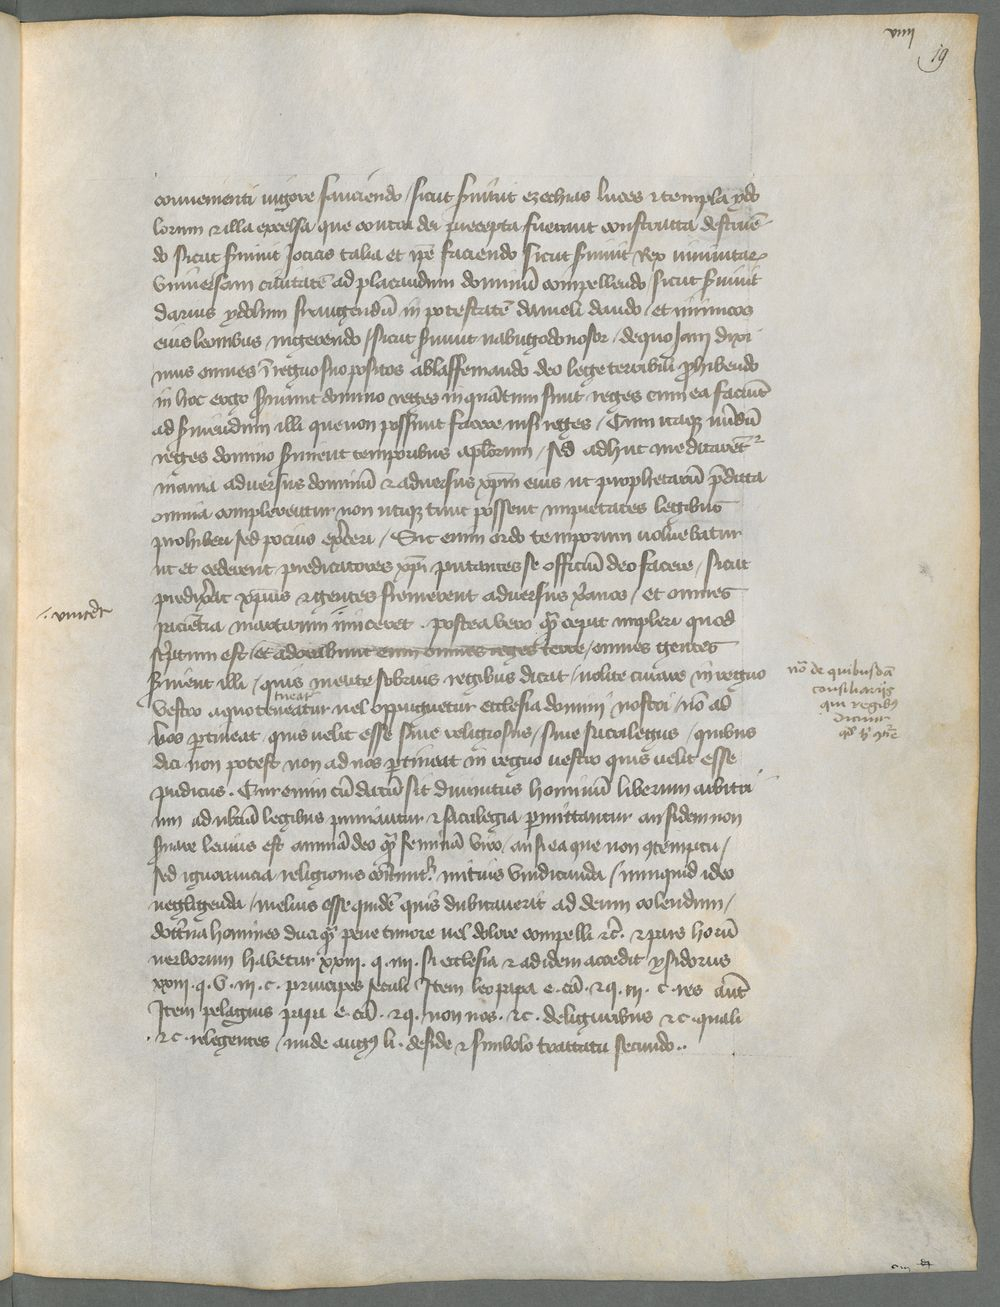 viiij
19
convenienti vigore sanciendo / sicut s͛uiuit ezechias lucos ⁊ templa ydo
lorum ⁊ illa excelsa / que contra dei precepta fuerant constructa destruē
do sicut s͛uiuit Jocias talia et ip̄e faciendo sicut s͛uiuit Rex niniuitaꝝ
Vniuersam ciuitatē ad placandum dominū compellendo sicut s͛uiuit
darius ydolum frangendū in potestatē danieli dando / et inimicos
eius leonibus ingerendo / sicut s͛uiuit nabugodonosor / de quo Jam dixi
mus omnes ī regno suo positos a blasfemando deo lege terribili ꝓhibendo
in hoc ergo s͛uiunt domino reges in quātum sunt reges cum ea faciūt
ad s͛uiendum illi que non possunt facere nisi reges / Cum itaqꝫ nōdū
reges domino s͛uirent temporibus apl̄orum / sed adhuc meditarent᷑
inania aduersus dominū ⁊ aduersus xp̄m eius ut prophetarū p̄dicta
omnia complerentur non utiqꝫ tunc possent impietates legibus
prohiberi sed pocius ex͛ceri / Sic enim ordo temporum uoluebatur
ut et cederent predicatores xp̄i putantes se officiū deo facere / sicut
predix͛at xp̄us ⁊ gentes fremerent aduersus xp̄ianos / et omnes
paciētia martirum
postea vero qͣꝫ cepit impleri quod
sc͛ptum est / et adorabunt eum omnes reges terre / omnes gentes
s͛uient illi / quis mente sobrius regibus dicat / nolite curare in regno
tueat᷑
vestro a quo teneatur uel oppugnetur ecclesia domini nostri / nō ad
vos ꝑtineat quis uelit esse siue religiosus / siue sacrilegus / quibus
dici non potest non ad nos ꝑtineat in regno uestro quis uelit esse
pudicus . Cur enim cū datū sit diuinitus hominū liberum arbitri
um adult͛ia legibus puniantur ⁊ sacrilegia ꝑmittantur an fidem non
s͛uare leuius est animā deo qͣꝫ feminā viro / an si ea que non ꝯtemptu /
sed ignorancia religionis cōmittunt᷑ mitius vindicanda / numquid ideo
negligenda / melius esse quidē quis dubitauerit ad deum colendum /
doct͛na homines duci qͣꝫ pene timore uel dolore compelli ⁊c̄ . ⁊ pars horū
uerborum habetur xxiij . q . iiij . si ecclesia ⁊ ad idem accedit ysidorus
xxiij . q . v . iij . c . principes seculi Item leo papa e . cā . ⁊ q . iij . c . res aūt
Item pelagius papa e . cā . ⁊ q . non nos . ⁊ c . de liguribus ⁊ c . quali
. ⁊ c . relegentes / unde augꝰ li . de fide ⁊ simbolo tractatu secundo . .
nō de quibusdā
consiliarijs
qui regibꝰ
dicunt